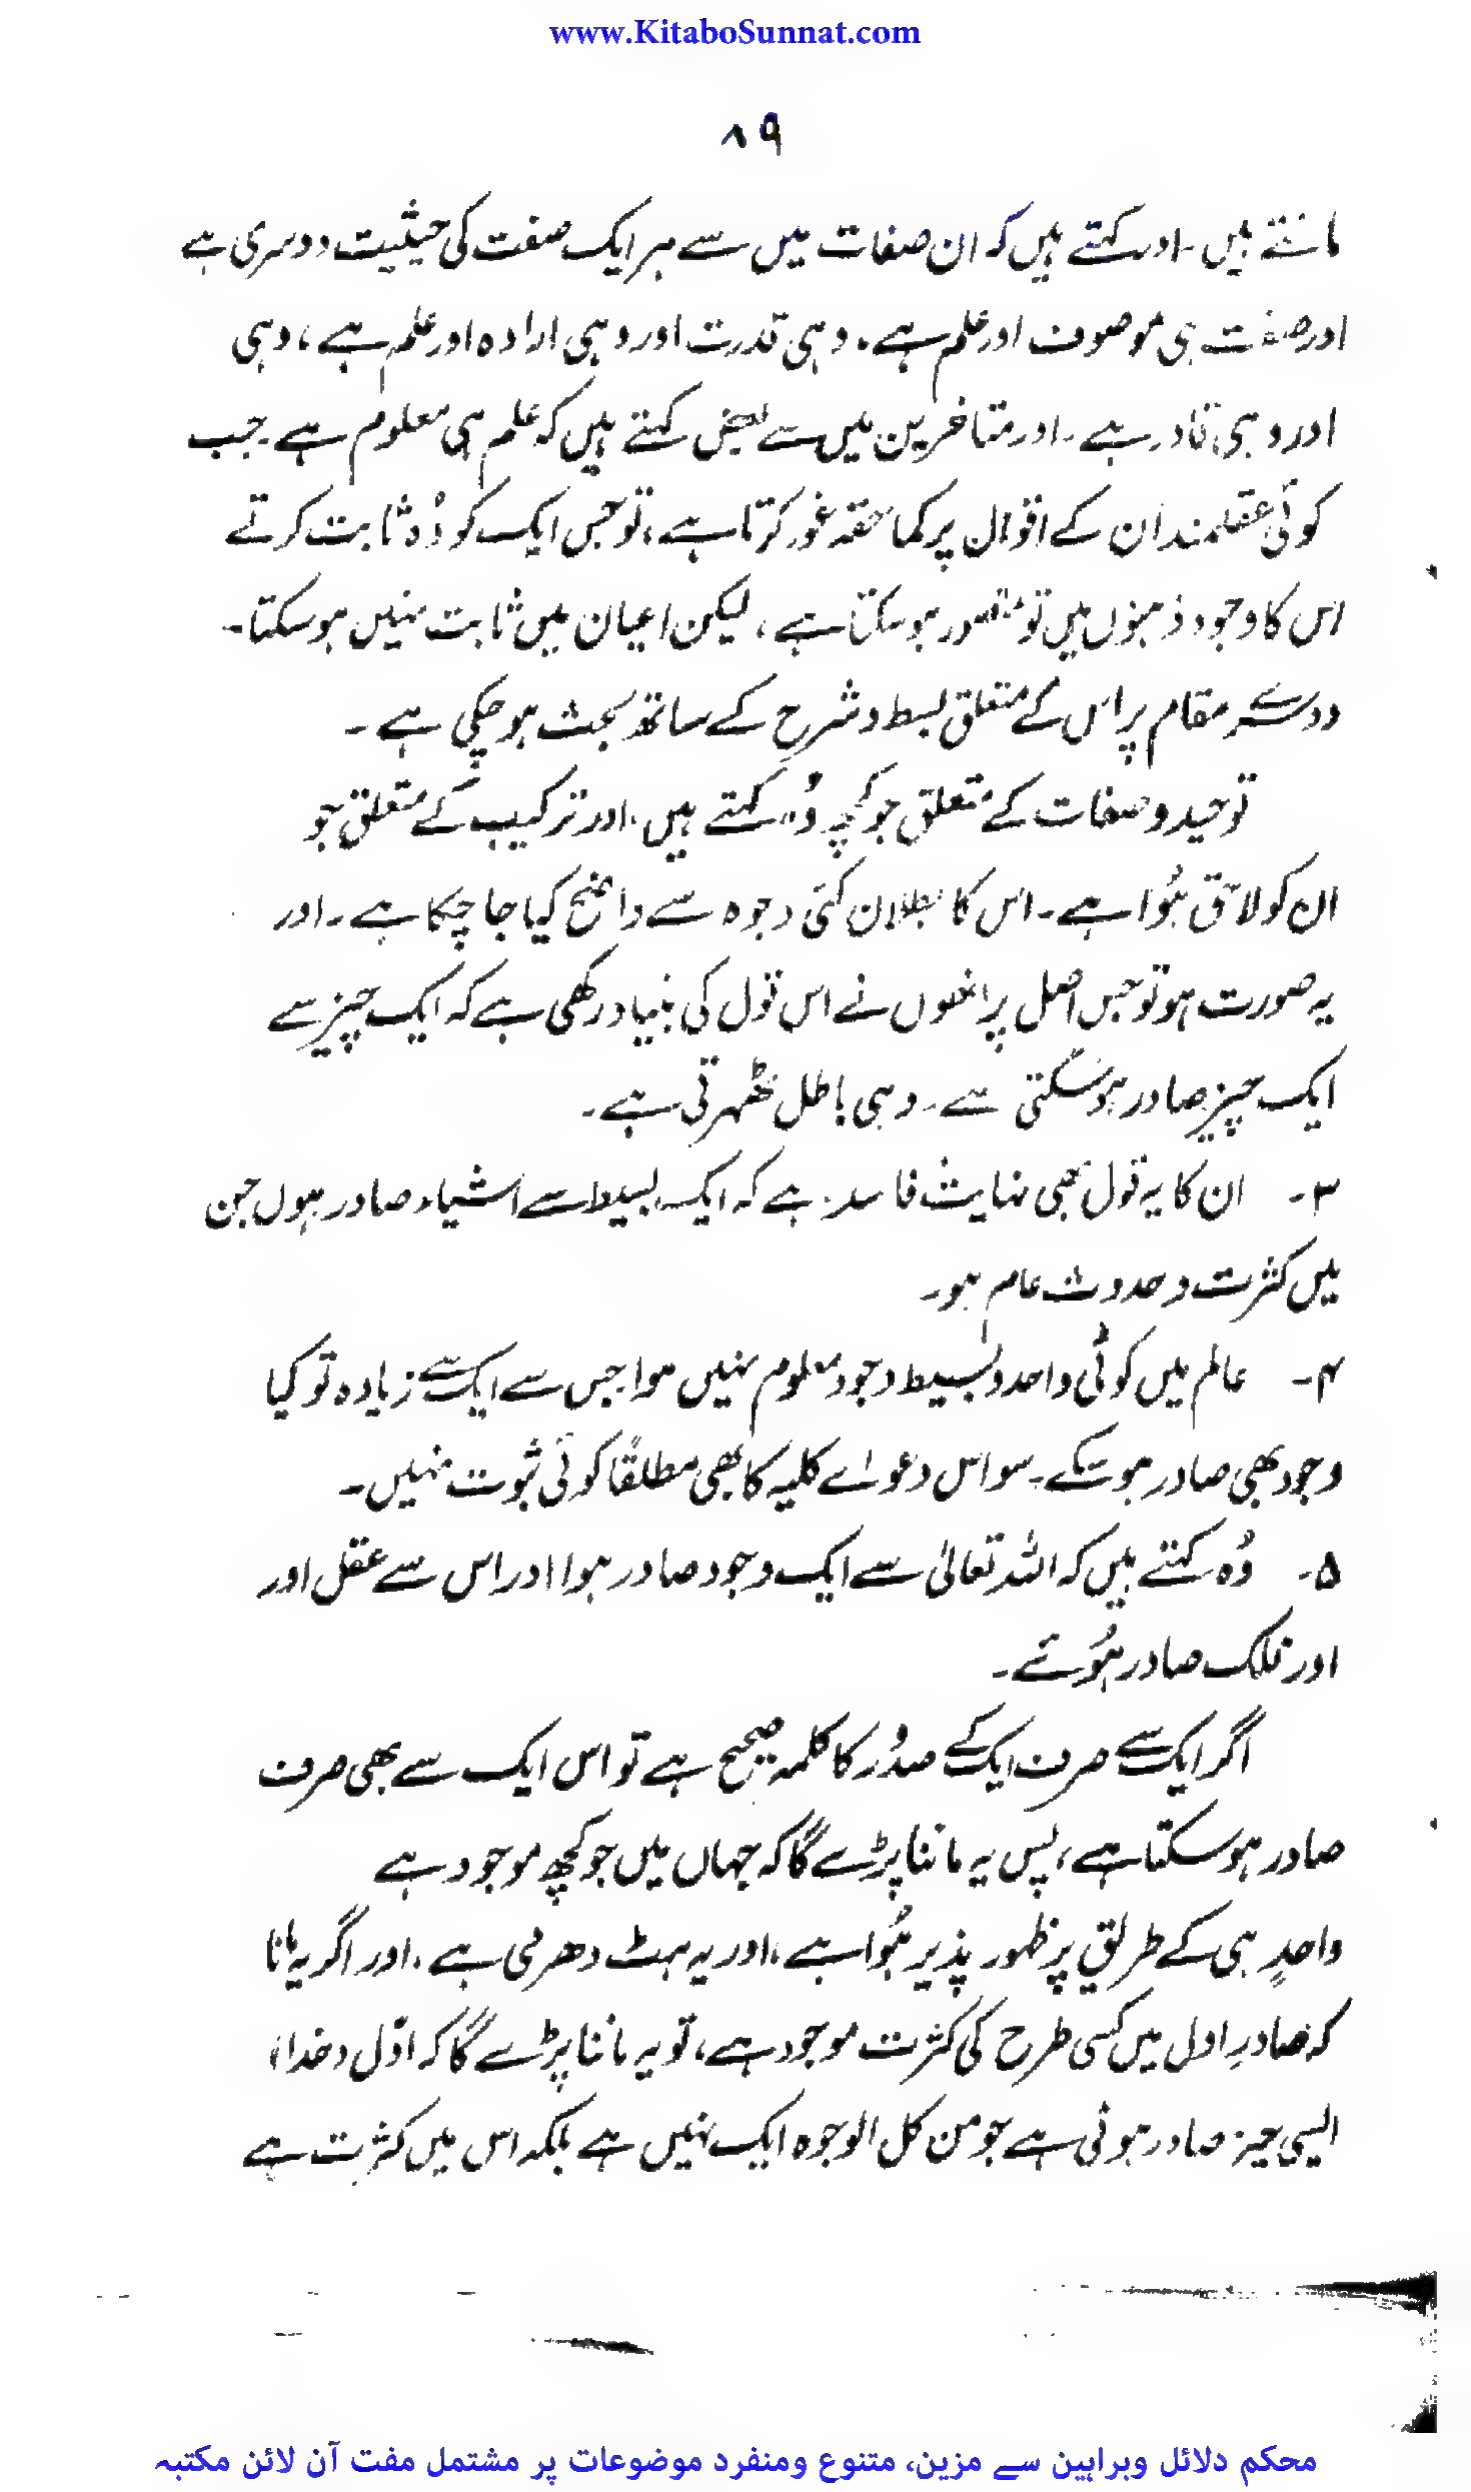 www.KitaboSunnat.com
۸۹
مانتے ہیں۔ اور کہتے ہیں کہ ان صفات میں سے ہر ایک صفت کی حیثیت دوسری ہے
اور صفت ہی موصوف اور علم ہے۔ وہی قدرت اور وہی ارادہ اور علم ہے، وہی
اور وہی قادر ہے۔ اور متاخرین میں سے بعض کہتے ہیں کہ علم ہی معلوم ہے۔ جب
کوئی عقلمند ان کے اقوال پر کما حقہ غور کرتا ہے، تو جس ایک کو وُہ ثابت کرتے
اس کا وجود ذہنوں میں تو متصور ہو سکتا ہے، لیکن اعیان میں ثابت نہیں ہو سکتا۔
دوسرے مقام پر اس کے متعلق بسط و شرح کے ساتھ بحث ہو چکی ہے۔
توحید و صفات کے متعلق جو کچھ وُہ کہتے ہیں، اور ترکیب کے متعلق جو
ان کو لائق ہُوا ہے۔ اس کا بطلان کئی وجوہ سے واضح کیا جا چکا ہے۔ اور
یہ صورت ہو تو جس اصل پر انھوں نے اس قول کی بنیاد رکھی ہے کہ ایک چیز سے
ایک چیز صادر ہو سکتی ہے۔ وہی باطل ٹھہرتی ہے۔
۳۔ ان کا یہ قول بھی نہایت فاسد ہے کہ ایک بسیط سے اشیاء صادر ہوں جن
میں کثرت و حدوث عام ہو۔
۴۔ عالم میں کوئی واحد و بسیط وجود معلوم نہیں ہوا جس سے ایک سے زیادہ تو کیا
وجود بھی صادر ہو سکے۔ سو اس دعواے کلیہ کا بھی مطلقًا کوئی ثبوت نہیں۔
۵۔ وُہ کہتے ہیں کہ اللہ تعالیٰ سے ایک وجود صادر ہوا اور اس سے عقل اور
اور فلک صادر ہُوئے۔
اگر ایک سے صرف ایک کے صدُور کا کلمہ صحیح ہے تو اس ایک سے بھی صرف
صادر ہو سکتا ہے، پس یہ ماننا پڑے گا کہ جہاں میں جو کچھ موجود ہے
واحدٍ ہی کے طریق پر ظہور پذیر ہُوا ہے، اور یہ ہٹ دھرمی ہے، اور اگر یہ مانا
کہ صادرِ اول میں کسی طرح کی کثرت موجود ہے، تو یہ ماننا پڑے گا کہ اوّل (خدا)
ایسی چیز صادر ہوئی ہے جو من کل الوجوہ ایک نہیں ہے بلکہ اس میں کثرت ہے
محکم دلائل وبراہین سے مزین، متنوع ومنفرد موضوعات پر مشتمل مفت آن لائن مکتبہ